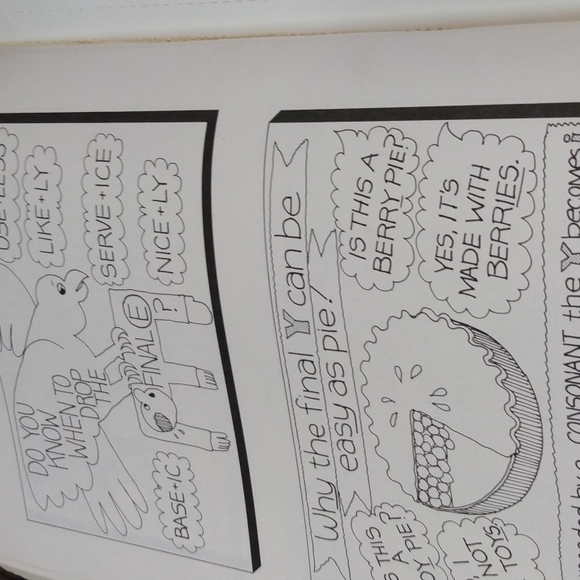 DO YOU
KNOW
WHEN TO
DROP
THE
FINAL E
?
USE+LESS
LIKE+LY
SERVE+ICE
NICE+LY
BASE+IC
Why the final Y can be
easy as pie!
THIS
A
PIE?
NOT
TOYS.
IS THIS A
BERRY PIE?
YES, IT'S
MADE WITH
BERRIES.
by a CONSONANT the Y becomes